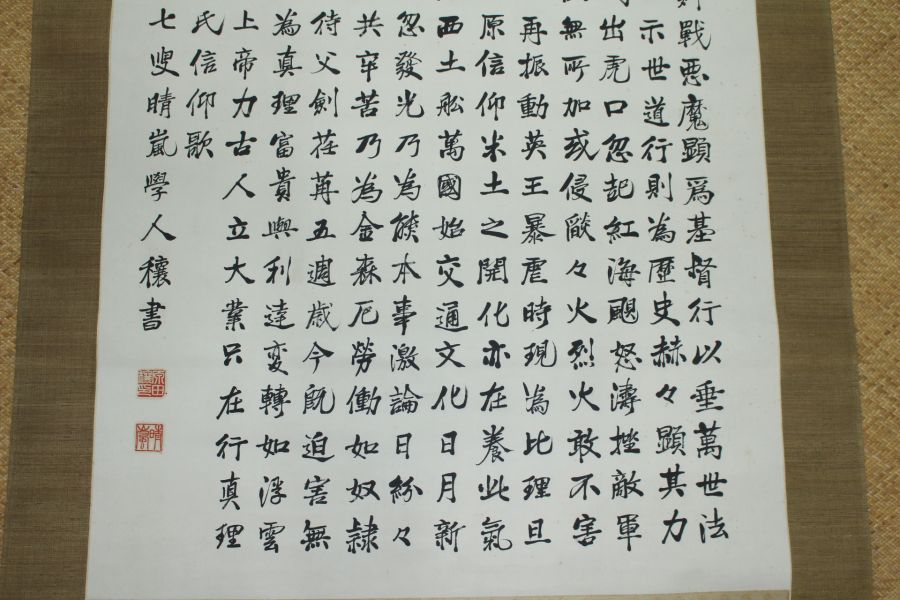 戰悪魔顕爲基督行以垂萬世法
示世道行則為歴史赫々顕其力
出虎口忽起紅海颶怒濤挫敵軍
無所加或侵燄々火烈火敢不害
再振動英王暴虐時現為比理旦
原信仰米土之開化亦在養此氣
西土舩萬國始交通文化日月新
忽發光乃為熊本事激論日紛々
共辛苦乃為金森厄勞働如奴隷
待父劍荏苒五週歳今既迫害無
為真理富貴與利達変轉如浮雲
上帝力古人立大業只在行真理
氏信仰歌
七叟晴嵐學人穰書